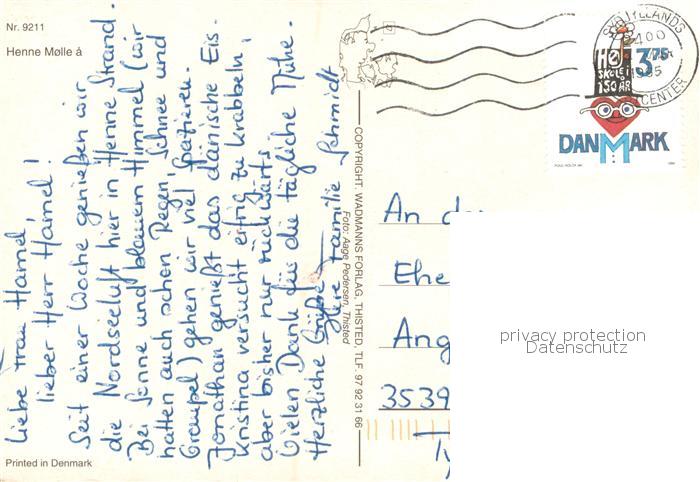 Nr. 9211
Henne Mølle å
Liebe Frau Hamel
lieber Herr Hamel!
Seit einer Woche genießen wir
die Nordseeluft hier in Henne Strand.
Bei Sonne und blauem Himmel (wir
hatten auch schon Regen, Schnee und
Graupel) gehen wir viel spazieren.
Jonathan genießt das dänische Eis.
Kristina versucht eifrig zu krabbeln,
aber bisher nur rückwärts.
Vielen Dank für die tägliche Mühe.
Herzliche Grüße
Ihre Familie Schmidt
Printed in Denmark
COPYRIGHT. WADMANNS FORLAG, THISTED, TLF. 97 92 31 66
Foto: Aage Pedersen, Thisted
SYDJYLLANDS
1995
CENTER
HØJ
SKOLE I
150 ÅR
3.75
DANMARK
An
Ehe
Ang
3539
privacy protection
Datenschutz